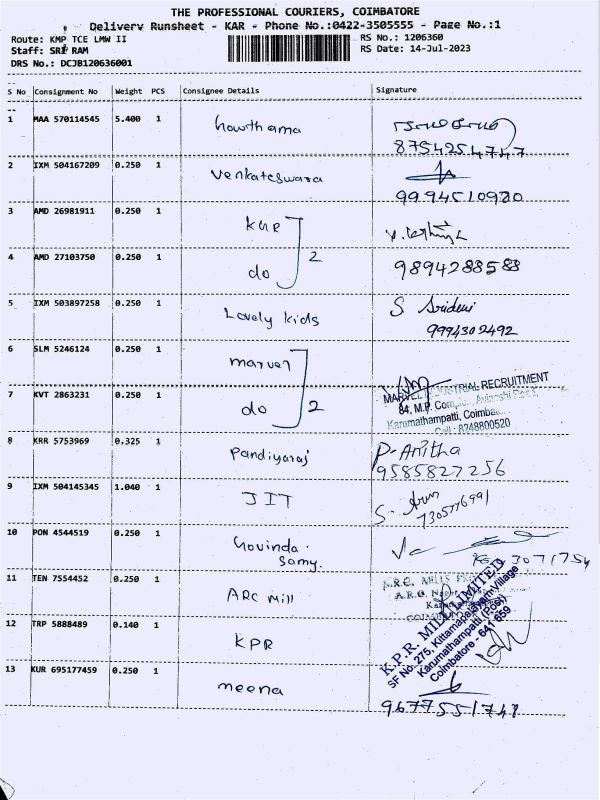 THE PROFESSIONAL COURIERS, COIMBATORE
Delivery Runsheet - KAR - Phone No.:0422-3505555 - Page No.:1
Route: KMP TCE LMW II RS No.: 1206360
Staff: SRI RAM RS Date: 14-Jul-2023
DRS No.: DCJB120636001
S No Consignment No Weight PCS Consignee Details Signature
1 MAA 570114545 5.400 1 Gowthama
8754254747
2 IXM 504167209 0.250 1 Venkateswara
9994510920
3 AMD 26981911 0.250 1 KMR
4 AMD 27103750 0.250 1 do 2 9894288588
5 IXM 503897258 0.250 1 Lovely kids S Sridevi
9994302492
6 SLM 5246124 0.250 1 marvel
7 KVT 2863231 0.250 1 do 2 RECRUITMENT
84, M.P.
Karumathampatti, Coimba
Cell: 8248800520
8 KRR 5753969 0.325 1 Pandiyaraj P-Anitha
9585827256
9 IXM 504145345 1.040 1 JIT S. Arun
7305776991
10 PON 4544519 0.250 1 Govinda
Samy. 3071754
11 TEN 7554452 0.250 1 ARC Mill
12 TRP 5888489 0.140 1 KPR K.P.R. MILL LIMITED
SF No. 275, Kittampalayam Village
Karumathampatti (Post)
Coimbatore - 641 659
13 KUR 695177459 0.250 1 meena
9677551748